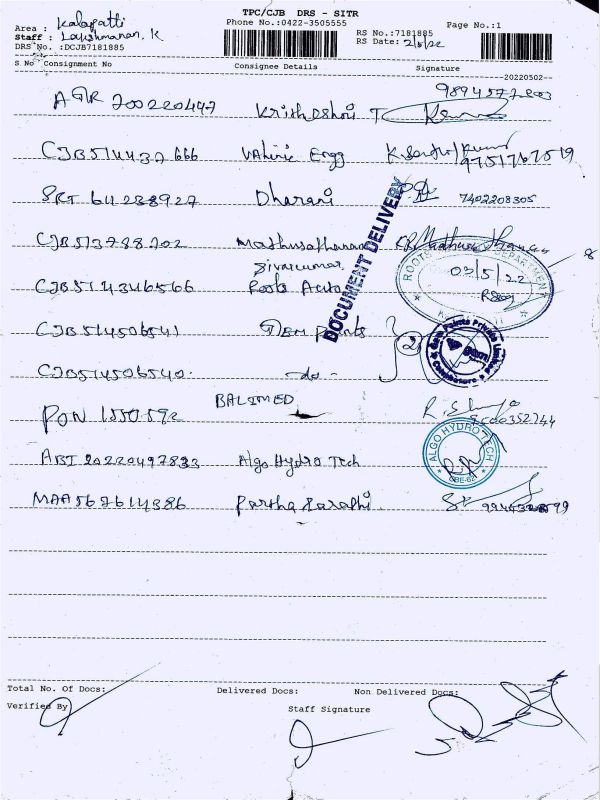 TPC/CJB DRS - SITR
Phone No.:0422-3505555
Page No.:1
Area : Kalapatti
Staff : Lakshmanan. K
DRS No. :DCJB7181885
RS No.:7181885
RS Date: 2/5/22
S No Consignment No Consignee Details Signature
20220502
9894572
200220447 Krithoshri T
CJB514437666 Engg 9751767519
611238927 Dharani 7402208305
CJB513788202
Sivakumar
CJB514346566 Roots Auto
CJB514506541 Gem Paints
CJB514506540 - do -
PON 1550592 BALIMED
20220497833 Algo Hydro Tech
MAA567614386 Partha Sarathi
DOCUMENT DELIVERY
ROOTS DEPARTMENT
03/5/22
Gem Paints Private Limited
ALGO HYDRO TECH
CBE-62
Total No. Of Docs: Delivered Docs: Non Delivered Docs:
Verified By
Staff Signature